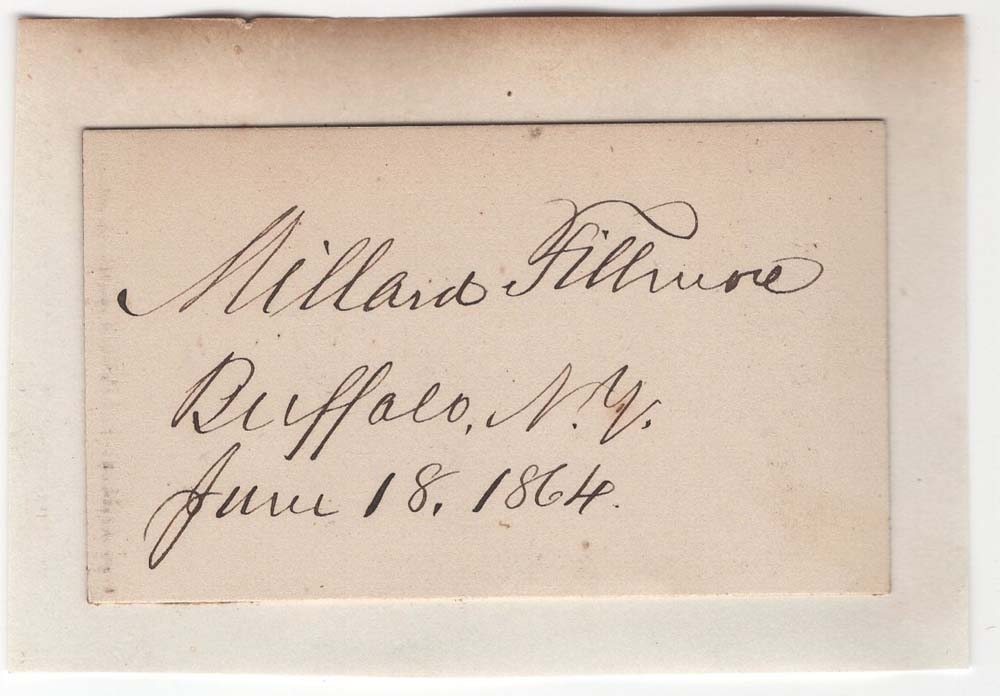 Millard Fillmore
Buffalo, N.Y.
June 18, 1864.